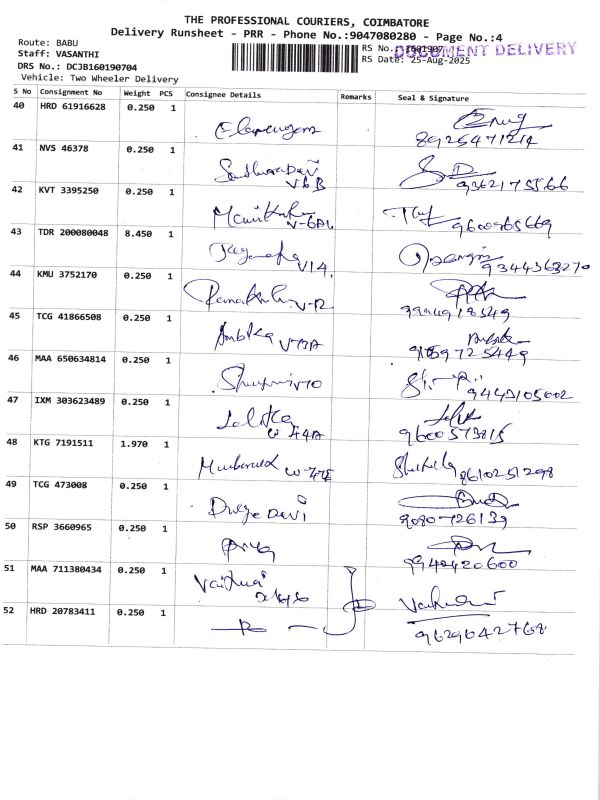 THE PROFESSIONAL COURIERS, COIMBATORE
Delivery Runsheet - PRR - Phone No.:9047080280 - Page No.:4
Route: BABU
Staff: VASANTHI
DRS No.: DCJB160190704
Vehicle: Two Wheeler Delivery
RS No.: 1601907
DOCUMENT DELIVERY
RS Date: 25-Aug-2025
S No Consignment No Weight PCS Consignee Details Remarks Seal & Signature
40 HRD 61916628 0.250 1
8925471214
41 NVS 46378 0.250 1
V6B
9362175566
42 KVT 3395250 0.250 1
9600965669
43 TDR 200080048 8.450 1
V14.
9344363270
44 KMU 3752170 0.250 1
V-12
45 TCG 41866508 0.250 1 Ambika
V-13A
46 MAA 650634814 0.250 1
9443105002
47 IXM 303623489 0.250 1 Lalitka
W 44A
9600573815
48 KTG 7191511 1.970 1
8610251298
49 TCG 473008 0.250 1 Durga Davi
9080-726139
50 RSP 3660965 0.250 1 Priya
9942420600
51 MAA 711380434 0.250 1
52 HRD 20783411 0.250 1
9629642768